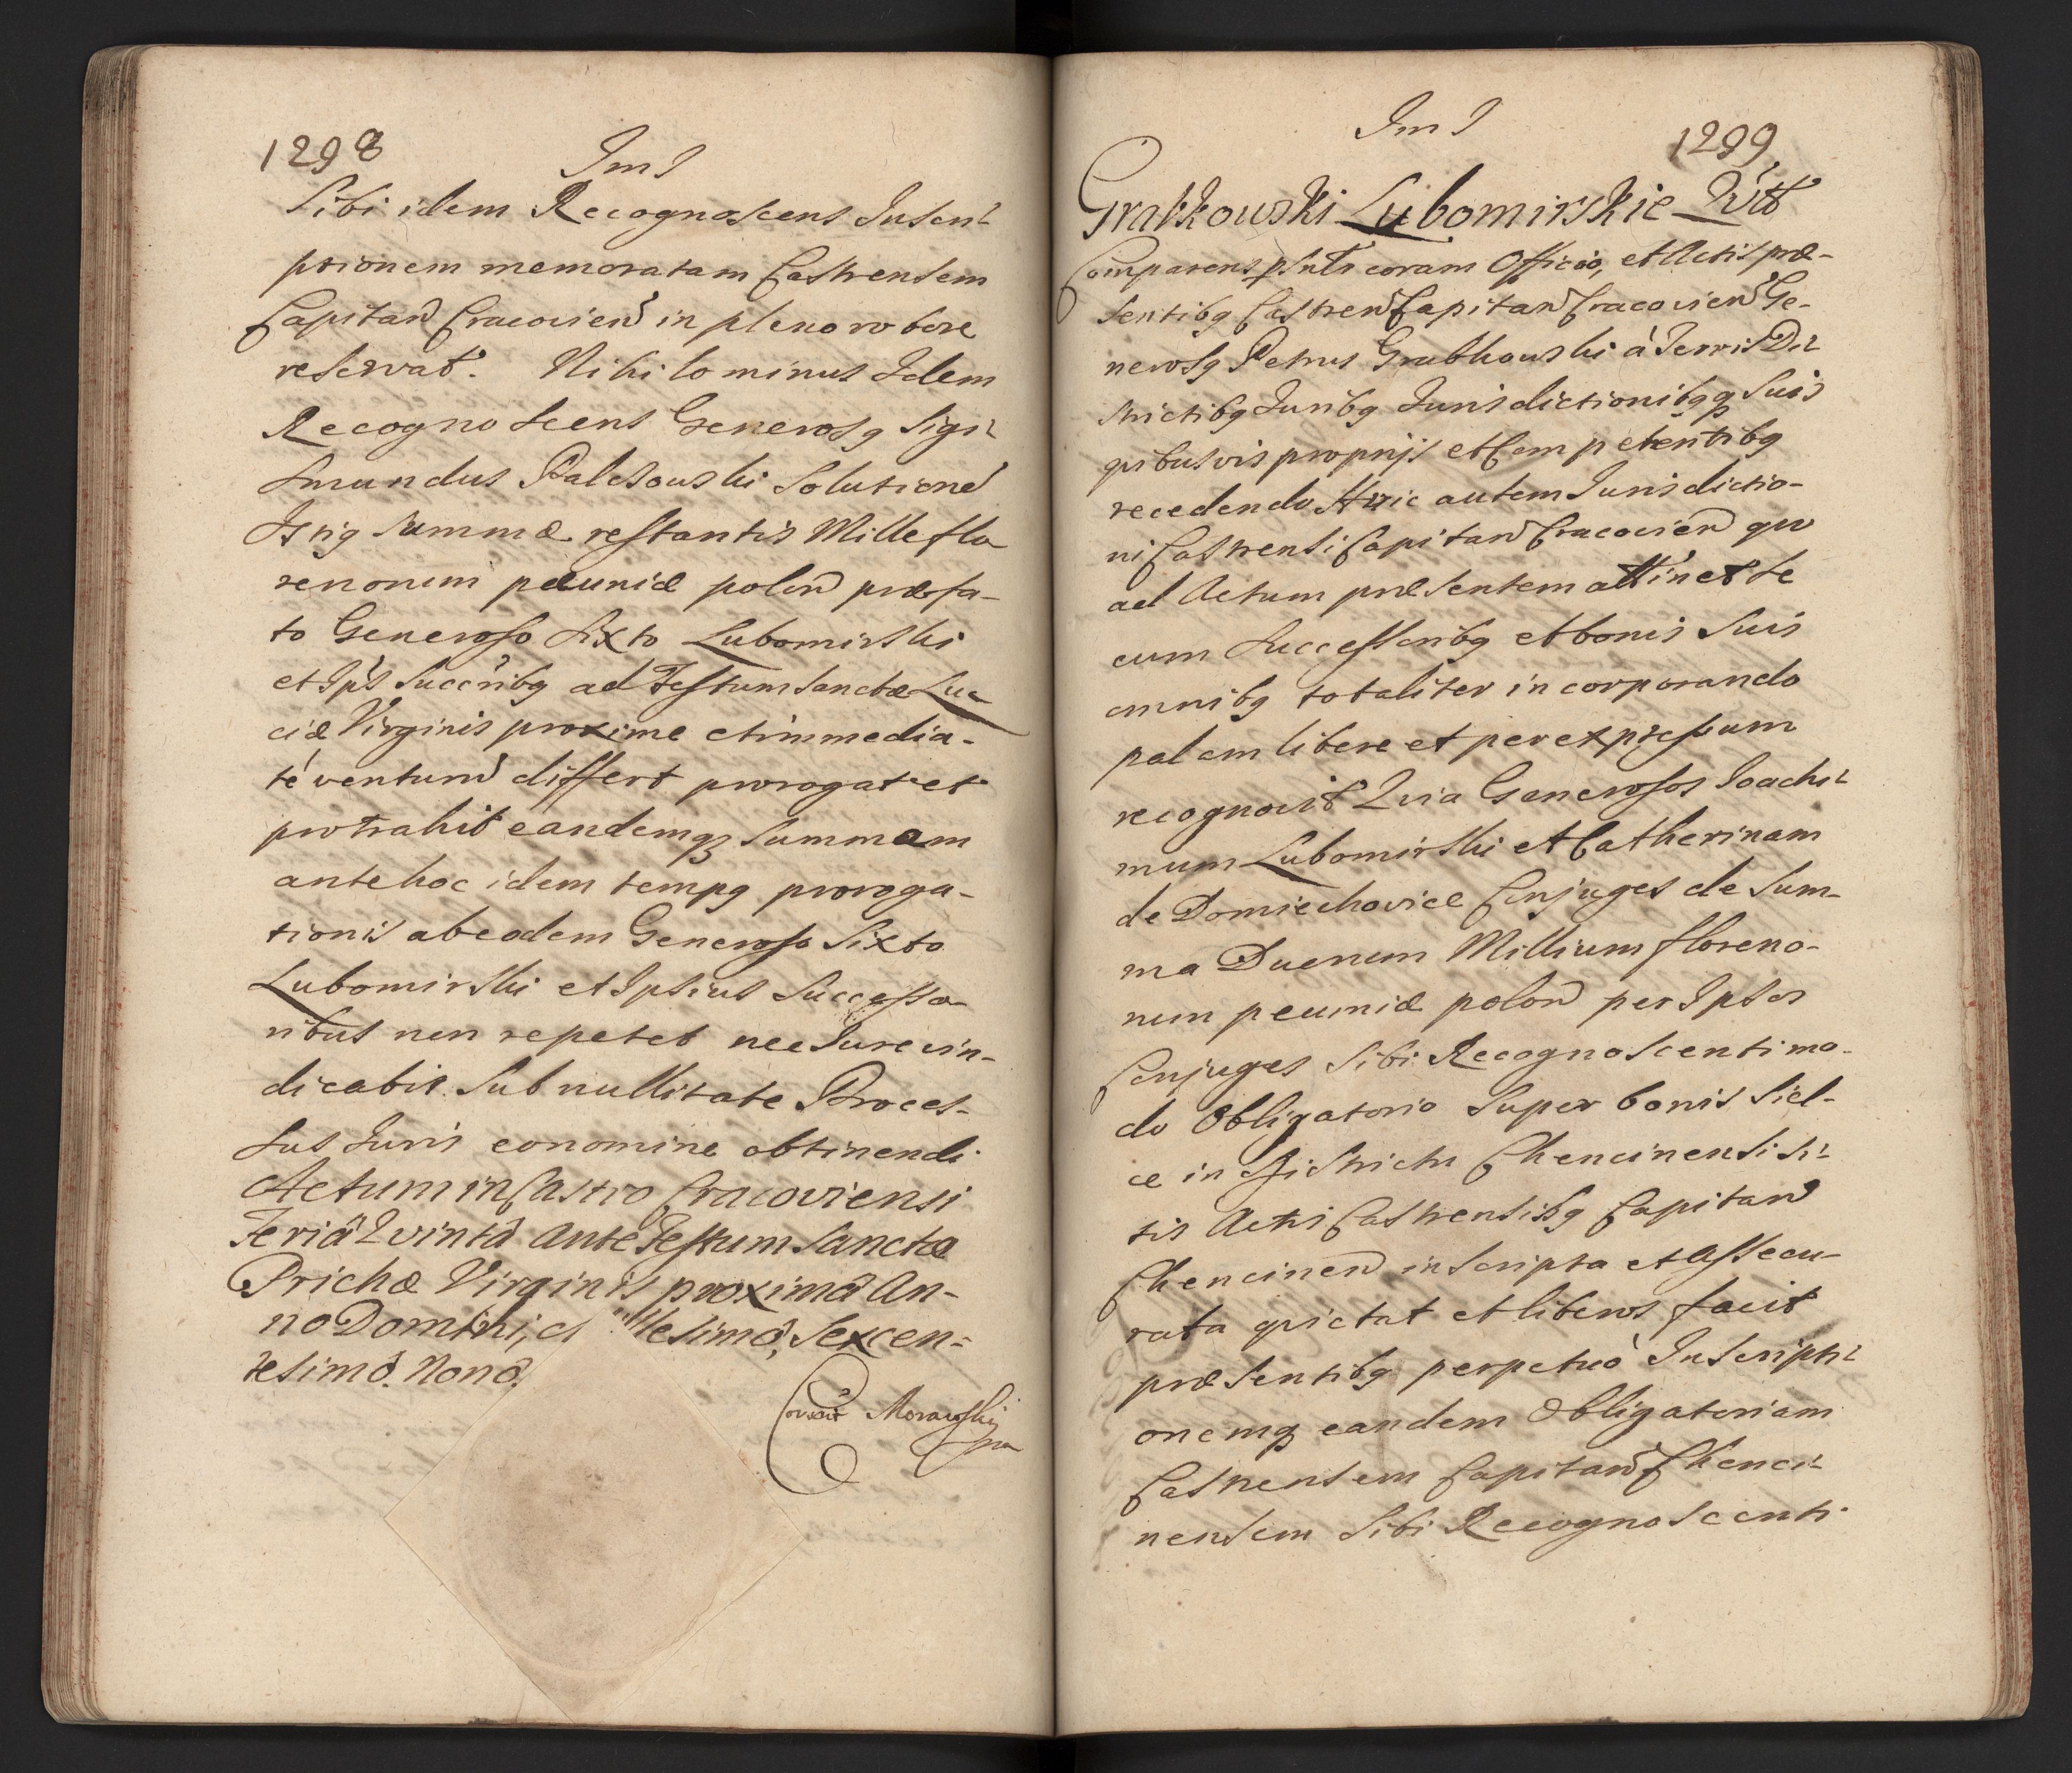 1298
Sibi idem Recognoscens Inscri-
ptionem memoratam Castrensem
Capitan̄ Cracovien̄ in pleno robore
reservat. Nihilominus Idem
Recognoscens Generosq Sigi-
smundus Palczowski Solutione
Istiq Summæ restantis Mille flo
renorum pecuniæ polon̄ præfa-
to Generoso Sixto Lubomirski
et Ips Succribq ad Festum Sanctæ Lu-
ciæ Virginis proxime et immedia-
té ventun̄ differt prorogat et
protrahit eandemqz Summam
ante hoc idem tempq proroga-
tionis ab eodem Generoso Sixto
Lubomirski et Ipsius Successo
ribus non repetet nec Jure vin-
dicabit. Sub nullitate Proces-
sus Juris eo nomine obtinendi
Actum in Castro Cracoviensi
Feriâ Qvintâ Ante Festum Sanctæ
Priscæ Virginis proximâ An-
no Domini, lesimô, Sexcen-
tesimô. Nonô.
1299
Grabkowski Lubomirskie Qvit
Comparens psntr coram Officio, et Actis præ-
sentibq Castren̄ Capitan̄ Cracovien̄ Ge-
nerosq Petrus Grabkowski à Terris Di-
strictibq Juribq Jurisdictionibqq Suis
qvibusvis proprijs et Competentibq
recedendo Huic autem Jurisdictio-
ni Castrensi Capitan̄ Cracovien̄ qvo
ad Actum præsentem attinet se
cum Successoribq et bonis Suis
omnibq totaliter incorporando
palam libere et per expressum
recognovit Qvia Generosos Joachi-
mum Lubomirski et Catherinam
de Domiechovice Conjuges de Sum-
ma Duorum Millium floreno-
rum pecuniæ polon̄ per Ipsos
Conjuges Sibi Recognoscenti mo-
do Obligatorio Super bonis Siel-
ce in districtu Chencinensi si-
tis Actis Castrensibq Capitan̄
Chencinen̄ inscripta et Assecu-
rata qvietat et liberos facit
præsentibq perpetuò Inscripti-
onemqz eandem Obligatoriam
Castrensem Capitan̄ Chenci-
nensem Sibi Recognoscenti